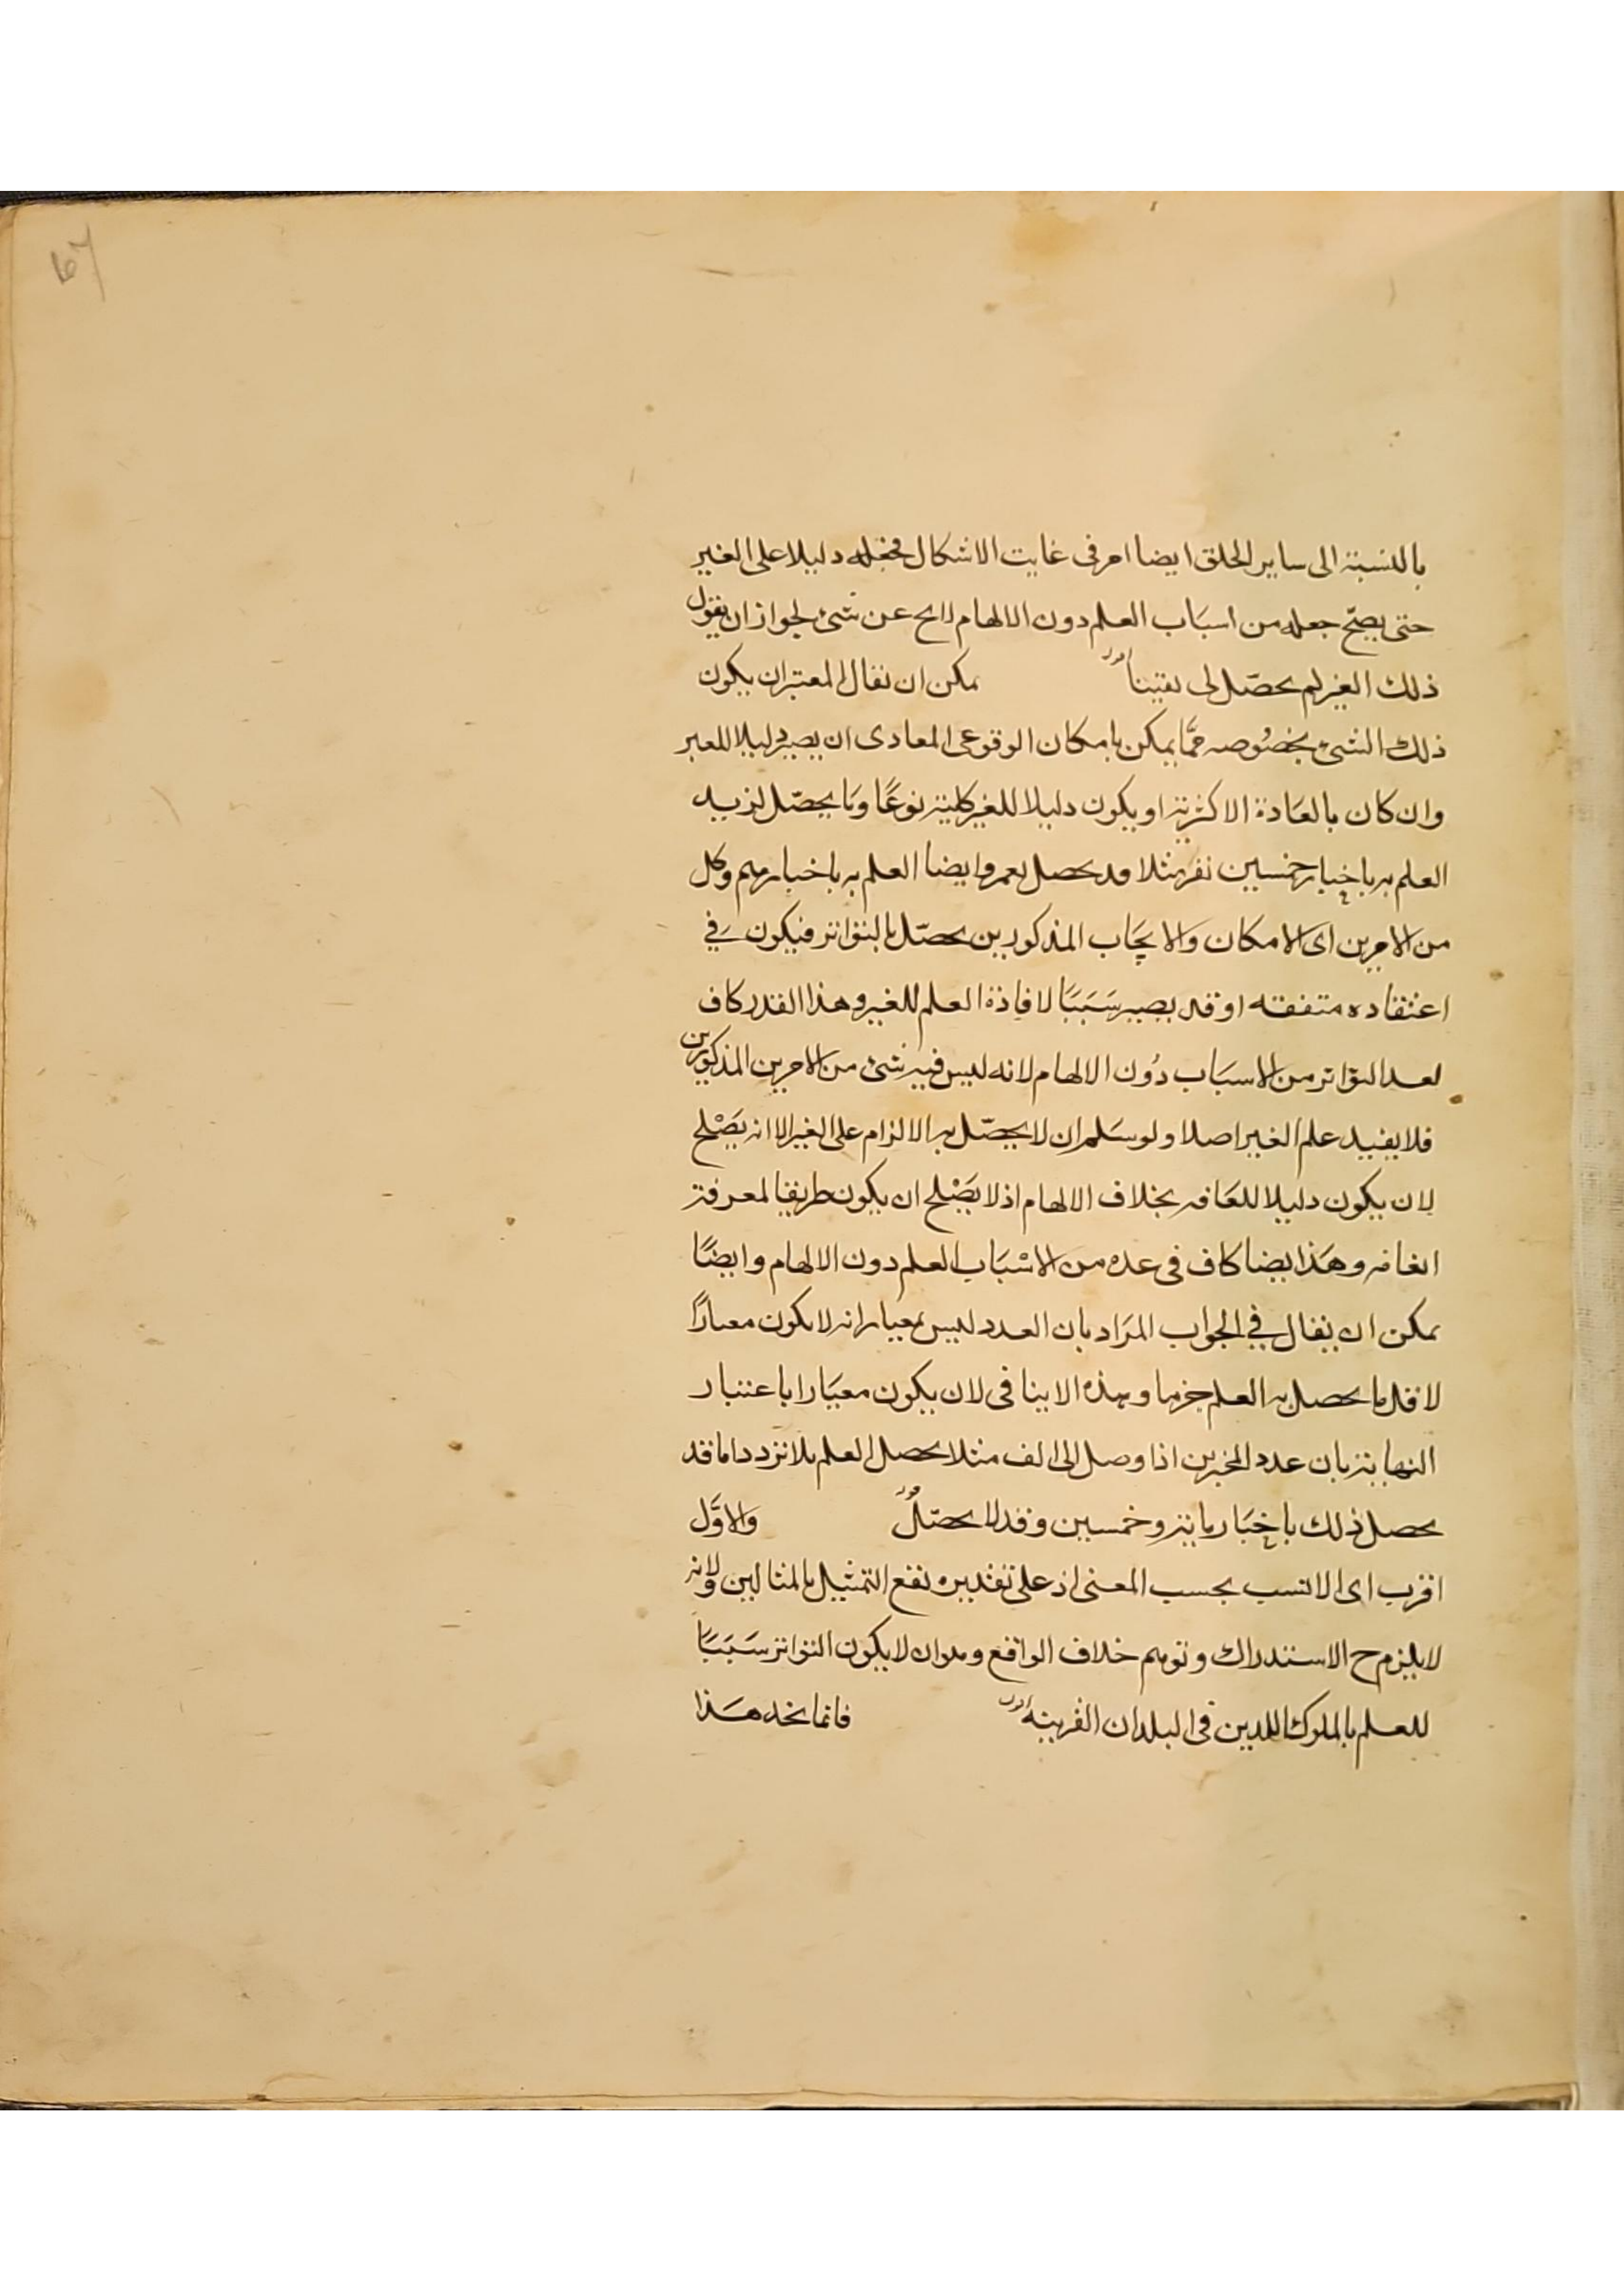 67
بالنسبة الى ساير الخلق ايضا امر فى غايت الاشكال فجعله دليلا على الغير
حتى يصحّ جعله من اسبَاب العلم دون الالهام لايح عن شىء لجواز ان يقول
ذلك الغير لم يحصّل لى يقينا يمكن ان يقال المعتبر ان يكون
ذلك الشىء بخصُوصه ممَّا يمكن بامكان الوقوعى المعادى ان يصير دليلا للعبر
وان كان بالعَادة الاكثرية او يكون دليلا للغير كلية نوعًا وَما يحصّل لزيد
العلم به باخبار خمسين نفر مثلا قد يحصل لعمرو ايضا العلم به باخبارهم وكل
من الامرين اى الامكان وَالايجَاب المذكورين يحصّل بالتواتر فيكون فِي
اعتقاده متفقه او قد يصير سَبَبًا لافادة العلم للغير وهذا القدر كاف
لعد التواتر من الاسبَاب دُون الالهام لانه ليس فيه شىء من الامرين المذكورين
فلا يفيد علم الغير اصلا ولو سَلم ان لا يحصّل به الالزام على الغير الا انه يصْلح
لان يكون دليلا للعَافه بخلاف الالهام اذ لا يصْلح ان يكون طريقا لمعرفة
العافه وهَذا ايضا كاف فى عده من الاسْبَاب العلم دون الالهام وايضًا
يمكن ان يقال فِي الجواب المرَاد بان العدد ليس بمعيار انه لا يكون معيارًا
لاقل ما يحصل به العلم جزما وهذه الا ينافى لان يكون معيَارا باعتبار
النهاية بان عدد المخبرين اذا وصل الى الف مثلا يحصل العلم بلا تردد اما قد
يحصل ذلك باخبَار ماية وخمسين وقد لا يحصّل وَالاوَّل
اقرب اى الانسب بحسب المعنى اذ على تقديره نفع التمثيل بالمثالين ولانه
لا يلزم ح الاستدراك وتوهم خلاف الواقع وهو ان لا يكون التواتر سَبَبًا
للعلم بالملوك اللدين فى البلدان القريبة فانما نجد هَذا